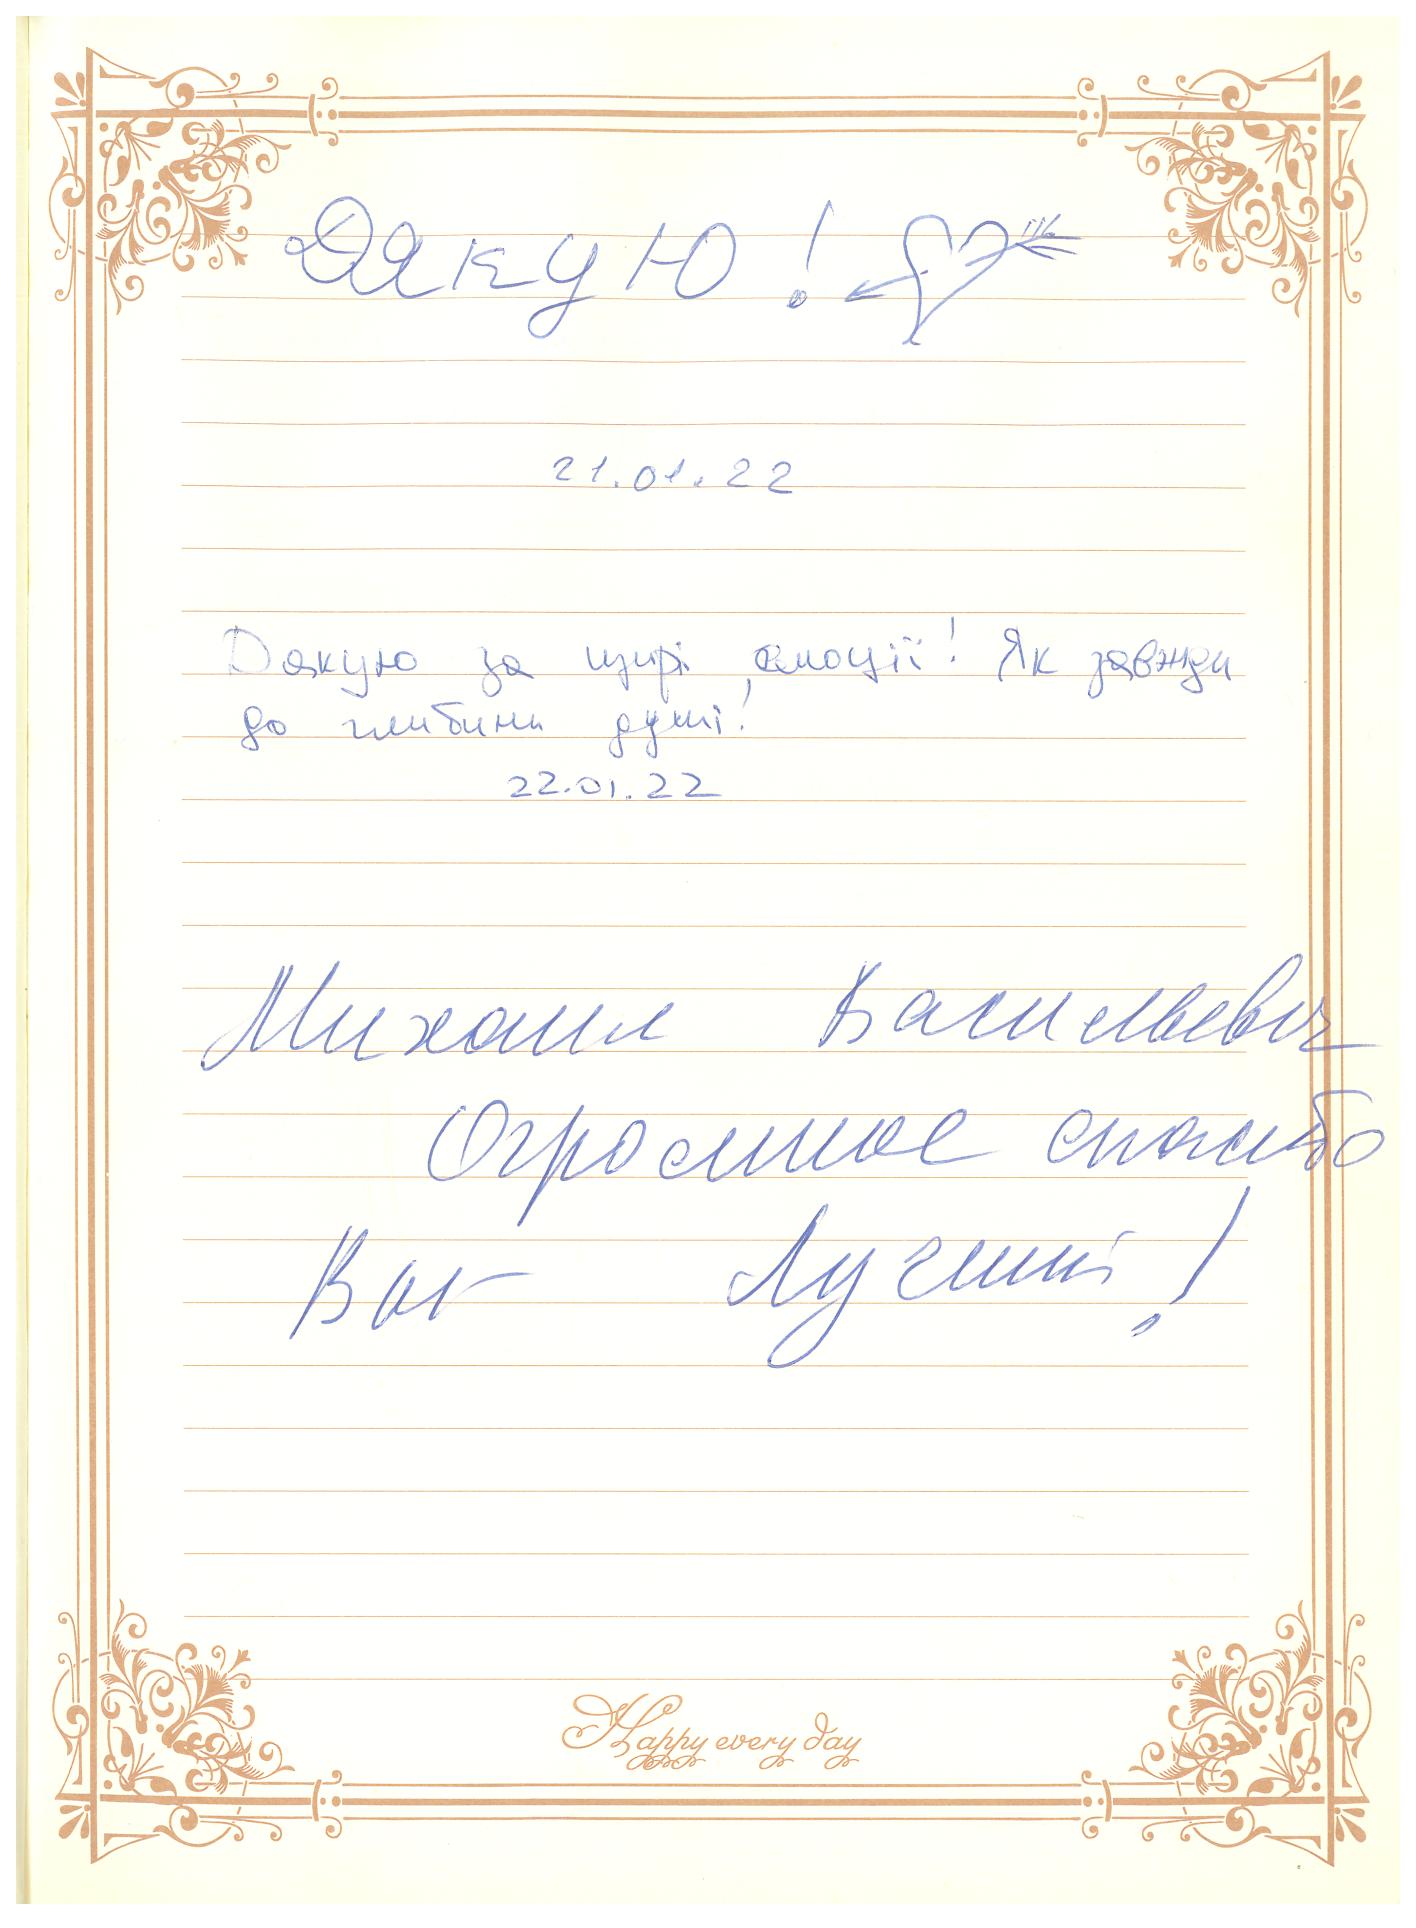 Дякую!
21.01.22
Дякую за щирі емоції! Як завжди
до глибини душі!
22.01.22
Михаил Васильевич
Огромное спасибо
Вы Лучший!
Happy every day